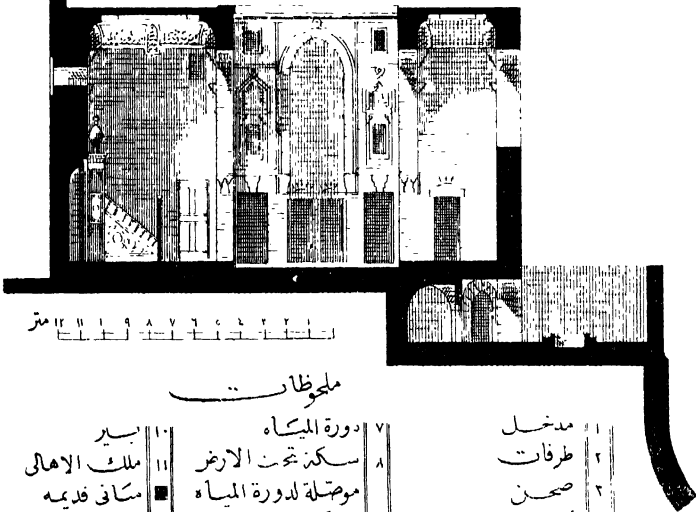 متر ١٢ ١١ ١٠ ٩ ٨ ٧ ٦ ٥ ٤ ٣ ٢ ١
ملحوظات
١ مدخل
٢ طرقات
٣ صحن
٧ دورة المياه
٨ سكة تحت الارض
موصلة لدورة المياه
١٠ بير
١١ ملك الاهالى
■ مبانى قديمه